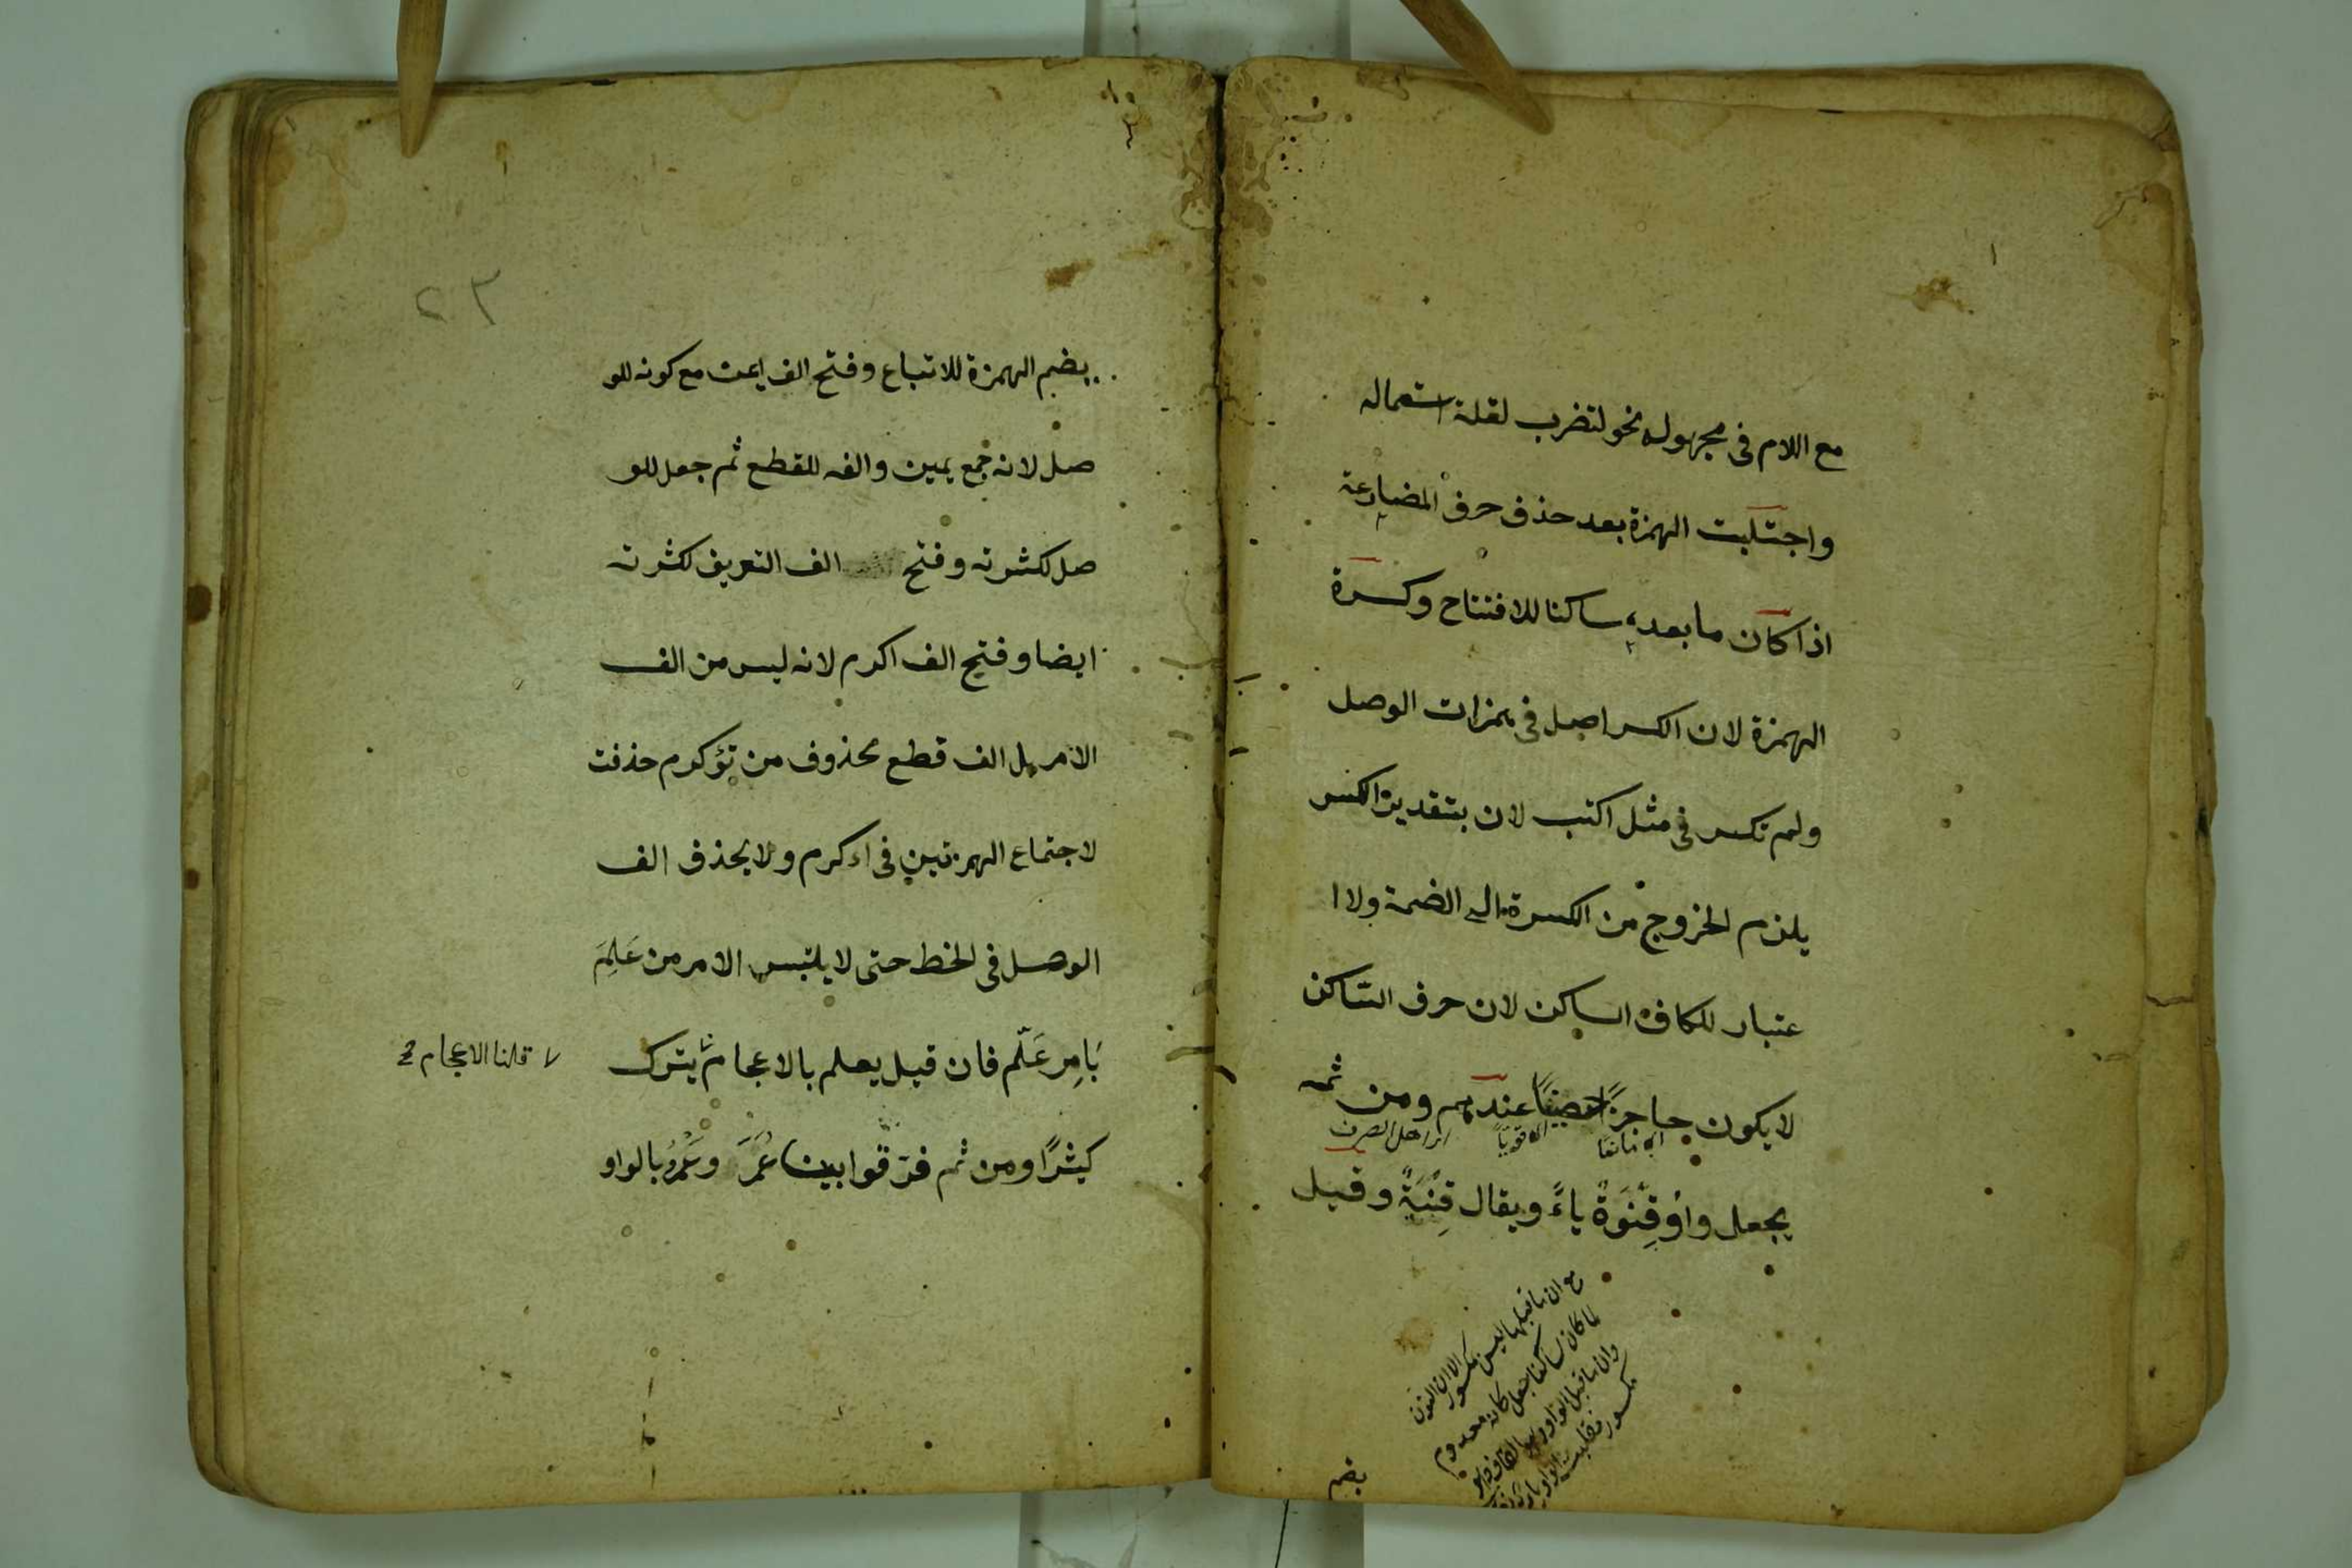 مع اللام فى مجهوله نحو لتضرب لقلة استعماله
واجتلبت الهمزة بعد حذف حرف المضارعة
اذا كان ما بعده ساكنا للافتتاح وكسرة
الهمزة لان الكسر اصل فى همزات الوصل
ولم تكسر فى مثل اكتب لان بتقدير الكسر
يلزم الخروج من الكسرة الى الضمة ولا ا
عتبار للكاف الساكن لان حرف الساكن
لا يكون حاجزًا حصينًا عندهم ومن ثمه
اى مانعًا
اى قويًا
اى اهل الصرف
يجعل واو قِنْوَةٌ ياءً ويقال قِنْيَةٌ وقيل
مع ان ما قبلها ليس بمكسور الا ان النون
لما كان ساكنا جعل كانه معدوم
وان ما قبل الواو هو القاف وهو
مكسور فقلبت الواو ياء
بضم
٢٣
بضم الهمزة للاتباع وفتح الف ايمن مع كونه للو
صل لانه جمع يمين والفه للقطع ثم جعل للو
صل لكثرته وفتح الف التعريف لكثرته
ايضا وفتح الف اكرم لانه ليس من الف
الامر بل الف قطع محذوف من تؤكرم حذفت
لاجتماع الهمزتين فى اءكرم ولا يحذف الف
الوصل فى الخط حتى لا يلتبس الامر من عَلِمَ
بَامِر عَلّم فان قيل يعلم بالاعجام يترك
قلنا الاعجام
كثيرًا ومن ثم فرّقوا بين عُمَرَ وعَمْرو بالواو